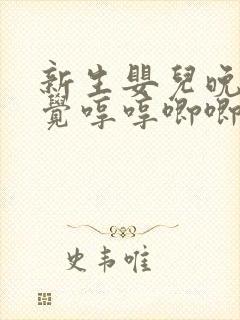 新生嬰兒晚
覺哼哼唧唧
史韦唯